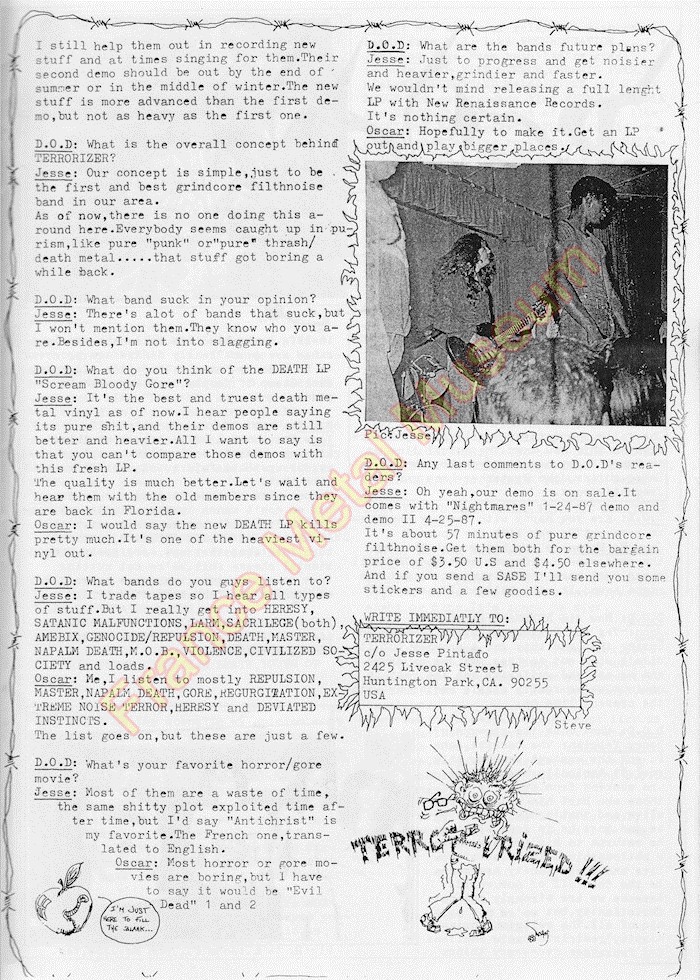 I still help them out in recording new
stuff and at times singing for them.Their
second demo should be out by the end of
summer or in the middle of winter.The new
stuff is more advanced than the first de-
mo,but not as heavy as the first one.
D.O.D: What is the overall concept behind
TERRORIZER?
Jesse: Our concept is simple,just to be
the first and best grindcore filthnoise
band in our area.
As of now,there is no one doing this a-
round here.Everybody seems caught up in pu-
rism,like pure "punk" or"pure" thrash/
death metal.....that stuff got boring a
while back.
D.O.D: What band suck in your opinion?
Jesse: There's alot of bands that suck,but
I won't mention them.They know who you a-
re.Besides,I'm not into slagging.
D.O.D: What do you think of the DEATH LP
"Scream Bloody Gore"?
Jesse: It's the best and truest death me-
tal vinyl as of now.I hear people saying
its pure shit,and their demos are still
better and heavier.All I want to say is
that you can't compare those demos with
this fresh LP.
The quality is much better.Let's wait and
hear them with the old members since they
are back in Florida.
Oscar: I would say the new DEATH LP kills
pretty much.It's one of the heaviest vi-
nyl out.
D.O.D: What bands do you guys listen to?
Jesse: I trade tapes so I hear all types
of stuff.But I really get into HERESY,
SATANIC MALFUNCTIONS,LARM,SACRILEGE(both),
AMEBIX,GENOCIDE/REPULSION,DEATH,MASTER,
NAPALM DEATH,M.O.B.,VIOLENCE,CIVILIZED SO-
CIETY and loads.
Oscar: Me,I listen to mostly REPULSION,
MASTER,NAPALM DEATH,GORE,REGURGITATION,EX-
TREME NOISE TERROR,HERESY and DEVIATED
INSTINCTS.
The list goes on,but these are just a few.
D.O.D: What's your favorite horror/gore
movie?
Jesse: Most of them are a waste of time,
the same shitty plot exploited time af-
ter time,but I'd say "Antichrist" is
my favorite.The French one,trans-
lated to English.
Oscar: Most horror or gore mo-
vies are boring,but I have
to say it would be "Evil
Dead" 1 and 2
I'M JUST
HERE TO FILL
THE
D.O.D: What are the bands future plans?
Jesse: Just to progress and get noisier
and heavier,grindier and faster.
We wouldn't mind releasing a full lenght
LP with New Renaissance Records.
It's nothing certain.
Oscar: Hopefully to make it.Get an LP
out and play bigger places.
Pic:Jesse
D.O.D: Any last comments to D.O.D's rea-
ders?
Jesse: Oh yeah,our demo is on sale.It
comes with "Nightmares" 1-24-87 demo and
demo II 4-25-87.
It's about 57 minutes of pure grindcore
filthnoise.Get them both for the bargain
price of $3.50 U.S and $4.50 elsewhere.
And if you send a SASE I'll send you some
stickers and a few goodies.
WRITE IMMEDIATLY TO:
TERRORIZER
c/o Jesse Pintado
2425 Liveoak Street B
Huntington Park,CA. 90255
USA
Steve
France Metal Museum